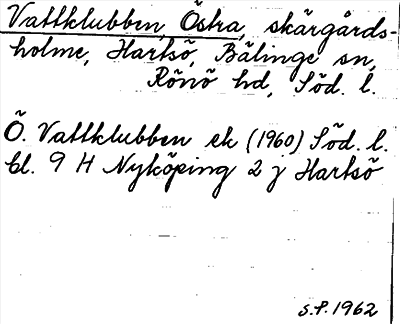 Vattklubben, Östra, skärgårds-
holme, Hartsö, Bälinge sn,
Rönö hd, Söd. l.
Ö. Vattklubben ek (1960) Söd. l.
bl. 9 H Nyköping 2 j Hartsö
S.P. 1962